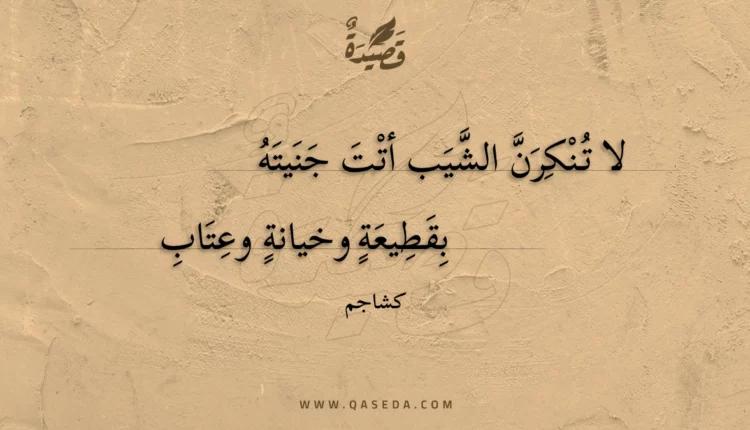 قَصِيْدَةٌ
لا تُنْكِرَنَّ الشَّيَب أتْتَ جَنَيتَهُ
بِقَطِيعَةٍ وخيانةٍ وعِتَابِ
كشاجم
WWW.QASEDA.COM